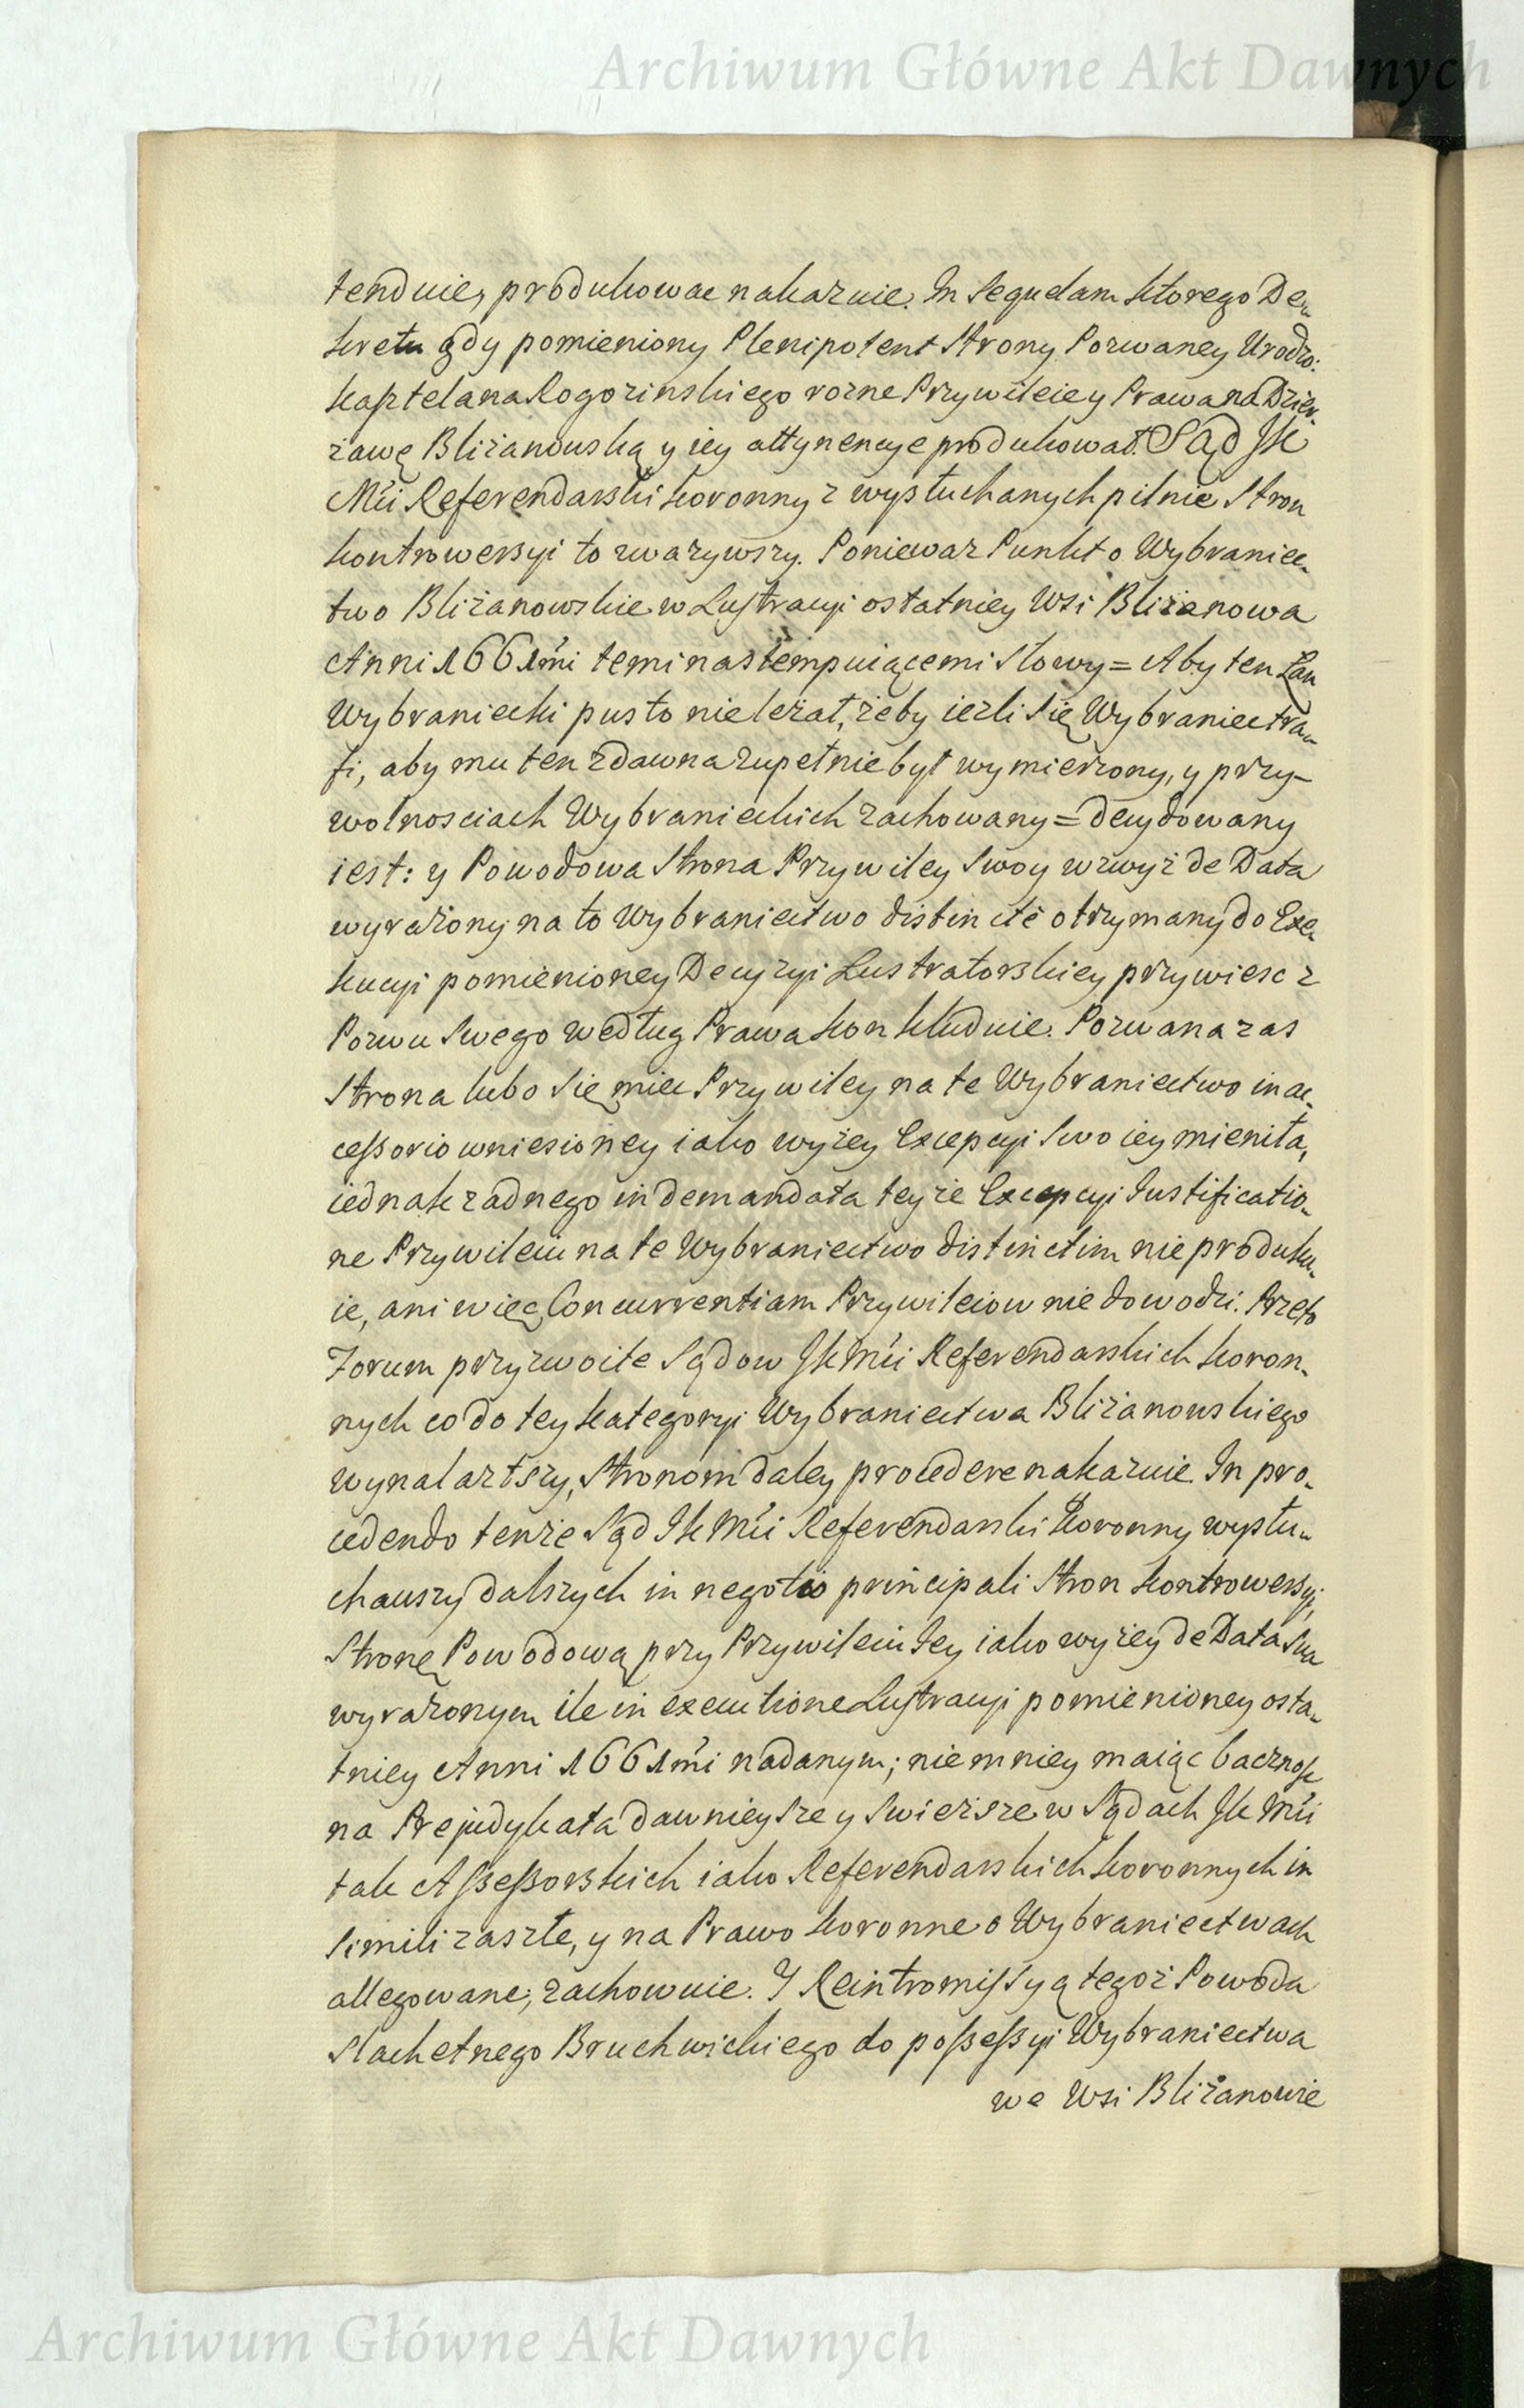 Archiwum Główne Akt Dawnych
tenduie, produkowac nakazuie. In sequelam ktorego De-
kretu gdy pomieniony Plenipotent Strony Pozwaney Urodzo:
Kasztelana Rogozinskiego rozne Przywileie y Prawa na Dzier-
żawę Bliżanowską y iey attynencye produkował. Sąd JK
Mći Referendarski Koronny z wysłuchanych pilnie Stron
kontrowersyi to zważywszy. Poniewaz Punkt o Wybraniec-
two Bliżanowskie w Lustracyi ostatniey Wsi Bliżanowa
Anni 1661mi temi nastempuiącemi Słowy = Aby ten Łan
Wybraniecki pusto nie leżał, żeby iezli się Wybraniec tra-
fi, aby mu ten zdawna zupełnie był wymierzony, y przy-
wolnosciach Wybranieckich zachowany = decydowany
iest: y Powodowa Strona Przywiley Swoy wzwyż de Data
wyrażony na to Wybraniectwo distincte otrzymany do Exe-
kucyi pomienioney Decyzyi Lustratorskiey przywiesc z
Pozwu Swego według Prawa konkluduie. Pozwana zas
Strona lubo się miec Przywiley na te Wybraniectwo in ac-
cessorio wniesioney iako wyżey Excepcyi Swoiey mieniła,
iednak zadnego in demandata teyże Excepcyi Justificatio-
ne Przywileiu na te Wybraniectwo distinctim nie produku-
ie, ani więc Concurrentiam Przywileiow nie dowodzi. Przeto
Forum przyzwoite Sądow JKMći Referendarskich Koron-
nych co do tey kategoryi Wybraniectwa Bliżanowskiego
wynalazłszy, Stronom daley procedere nakazuie. In pro-
cedendo tenże Sąd JKMći Referendarski Koronny wysłu-
chawszy dalszych in negotio principali Stron kontrowersyi,
Stronę Powodową przy Przywileiu Jey iako wyżey de Data Sua
wyrażonym ile in executione Lustracyi pomienioney osta-
tniey Anni 1661mi nadanym; niemniey maiąc bacznosc
na Prejudykata dawnieysze y swieższe w Sądach JKMći
tak Assessorskich iako Referendarskich Koronnych in
simili zaszłe, y na Prawo Koronne o Wybraniectwach
allegowane, zachowuie. Y Reintromissyą tegoż Powoda
Slachetnego Bruchwickiego do possessyi Wybraniectwa
we Wsi Bliżanowie
Archiwum Główne Akt Dawnych